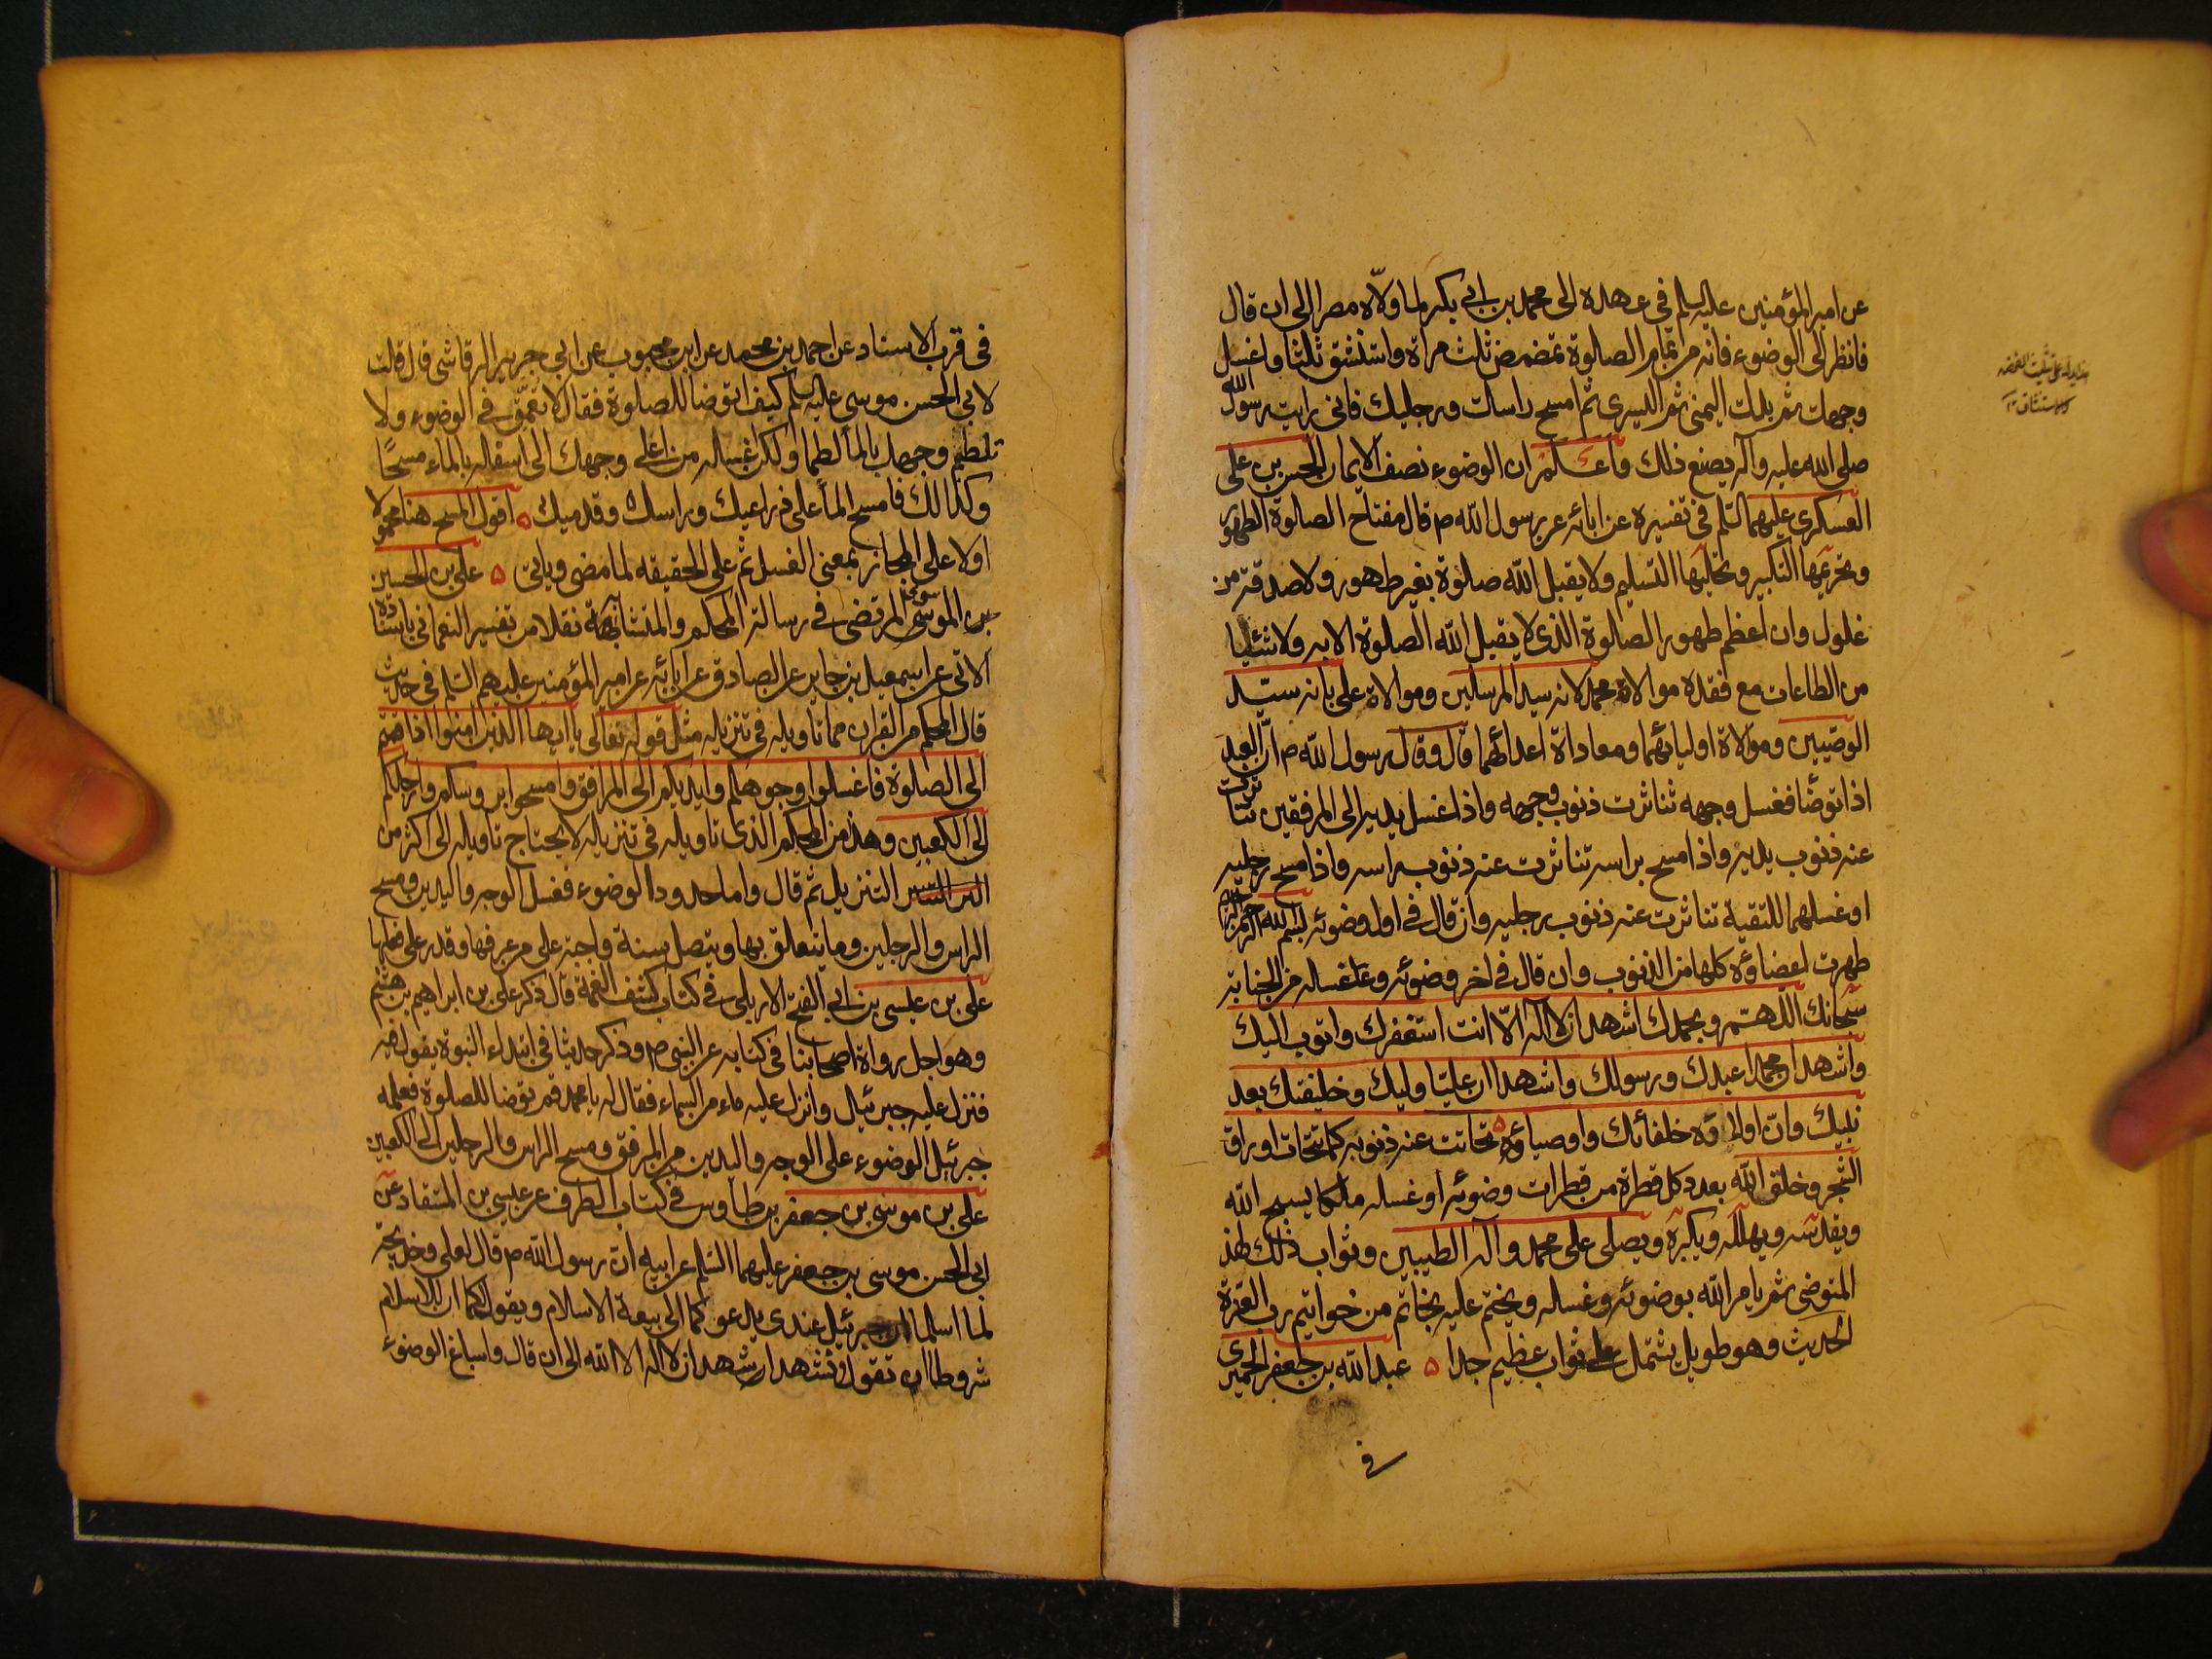 عن امير المؤمنين عليه السلم فى عهده الى محمد بن ابى بكر لما ولاه مصر الى ان قال
فانظر الى الوضوء فانه من تمام الصلوة تمضمض ثلث مراة واستنشق ثلثا واغسل
وجهك ثم يدك اليمنى ثم اليسرى ثم امسح راسك ورجليك فانى رايت رسول الله
صلى الله عليه وآله يصنع ذلك واعلم ان الوضوء نصف الايمان الحسن بن على
العسكرى عليهما السلم فى تفسيره عن ابائه عن رسول الله ص قال مفتاح الصلوة الطهور
وتحريمها التكبير وتحليلها التسليم ولا يقبل الله صلوة بغير طهور ولا صدقة من
غلول وان اعظم طهور الصلوة الذى لا يقبل الله الصلوة الا به ولا شئيا
من الطاعات مع فقده موالاة محمد لانه سيد المرسلين وموالاة على بانه سيد
الوصيين وموالاة اوليائهما ومعاداة اعدائهما قال وقال رسول الله ص ان العبد
اذا توضا فغسل وجهه تناثرت ذنوب وجهه واذا غسل يديه الى المرفقين تناثرت
عنه ذنوب يديه واذا مسح براسه تناثرت عنه ذنوب راسه واذا مسح رجليه
او غسلهما للتقية تناثرت عنه ذنوب رجليه وان قال فى اول وضوئه بسم الله الرحمن الرحيم
طهرت اعضاؤه كلها من الذنوب وان قال فى اخر وضوئه وغسله من الجنابة
سبحانك اللهم وبحمدك اشهد ان لا اله الا انت استغفرك واتوب اليك
واشهد ان محمدا عبدك ورسولك واشهد ان عليا وليك وخليفتك بعد
نبيك وان اولياؤه خلفائك واوصياؤه تحاتت عنه ذنوبه كما تتحات اوراق
الشجر وخلق الله بعدد كل قطرة من قطرات وضوئه او غسله ملكا يسبح الله
ويقدسه ويهلله ويكبره ويصلى على محمد وآله الطيبين وثواب ذلك لهذ
المتوضى ثم يامر الله بوضوئه وغسله ويختم عليه بخاتم من خواتيم رب العزة
الحديث وهو طويل يشتمل على ثواب عظيم جدا ۵ عبد الله بن جعفر الحميرى
فى
فى قرب الاسناد عن احمد بن محمد عن ابن محبوب عن ابي جرير الرقاشى قال قلت
لابي الحسن موسى عليه السلم كيف اتوضا للصلوة فقال لا تعمق فى الوضوء ولا
تلطم وجهك بالماء لطما ولكن اغسله من اعلى وجهك الى اسفله بالماء مسحًا
وكذالك فامسح الماء على ذراعيك وراسك وقدميك ۵ اقول المسح هنا محمولا
اولا على المجاز بمعنى الغسل ثم على الحقيقه لما مضى وياتى ۵ على بن الحسين
بن الموسوى المرتضى فى رسالة المحكم والمتشابه نقلا من تفسير النعمانى باسناده
الاتى عن اسمعيل بن جابر عن الصادق عن آبائه عن امير المؤمنين عليهم السلم فى حديث
قال المحكم من القران مما تاويله فى تنزيله مثل قوله تعالى يا ايها الذين امنوا اذا قمتم
الى الصلوة فاغسلوا وجوهكم وايديكم الى المرافق وامسحوا برؤسكم وارجلكم
الى الكعبين وهذا من المحكم الذى تاويله فى تنزيله لا يحتاج تاويله الى اكثر من
التنزيل ثم قال واما حدود الوضوء فغسل الوجه واليدين ومسح
الراس والرجلين وما يتعلق بها ويتصل سنة واجبة على من عرفها وقدر على فعلها
على بن عيسى بن ابى الفتح الاربلى فى كتاب كشف الغمة قال ذكر على بن ابراهيم بن هشيم
وهو اجل رواة اصحابنا فى كتابه عن النبى ص وذكر حديثا فى ابتداء النبوة يقول فيه
فنزل عليه جبرئيل وانزل عليه ماء من السماء فقال له يا محمد قم توضا للصلوة فعلمه
جبرئيل الوضوء على الوجه واليدين من المرفق ومسح الراس والرجلين الى الكعبين
على بن موسى بن جعفر بن طاوس فى كتاب الطرف عن عيسى بن المستفاد عن
ابى الحسن موسى بن جعفر عليهما السلم عن ابيه ان رسول الله ص قال لعلى وخديجة
لما اسلما ان جبرئيل عندى يدعوكما الى بيعة الاسلام ويقول لكما ان للاسلام
شروطا ان تقولا نشهد ان لا اله الا الله الى ان قال واسباغ الوضوء